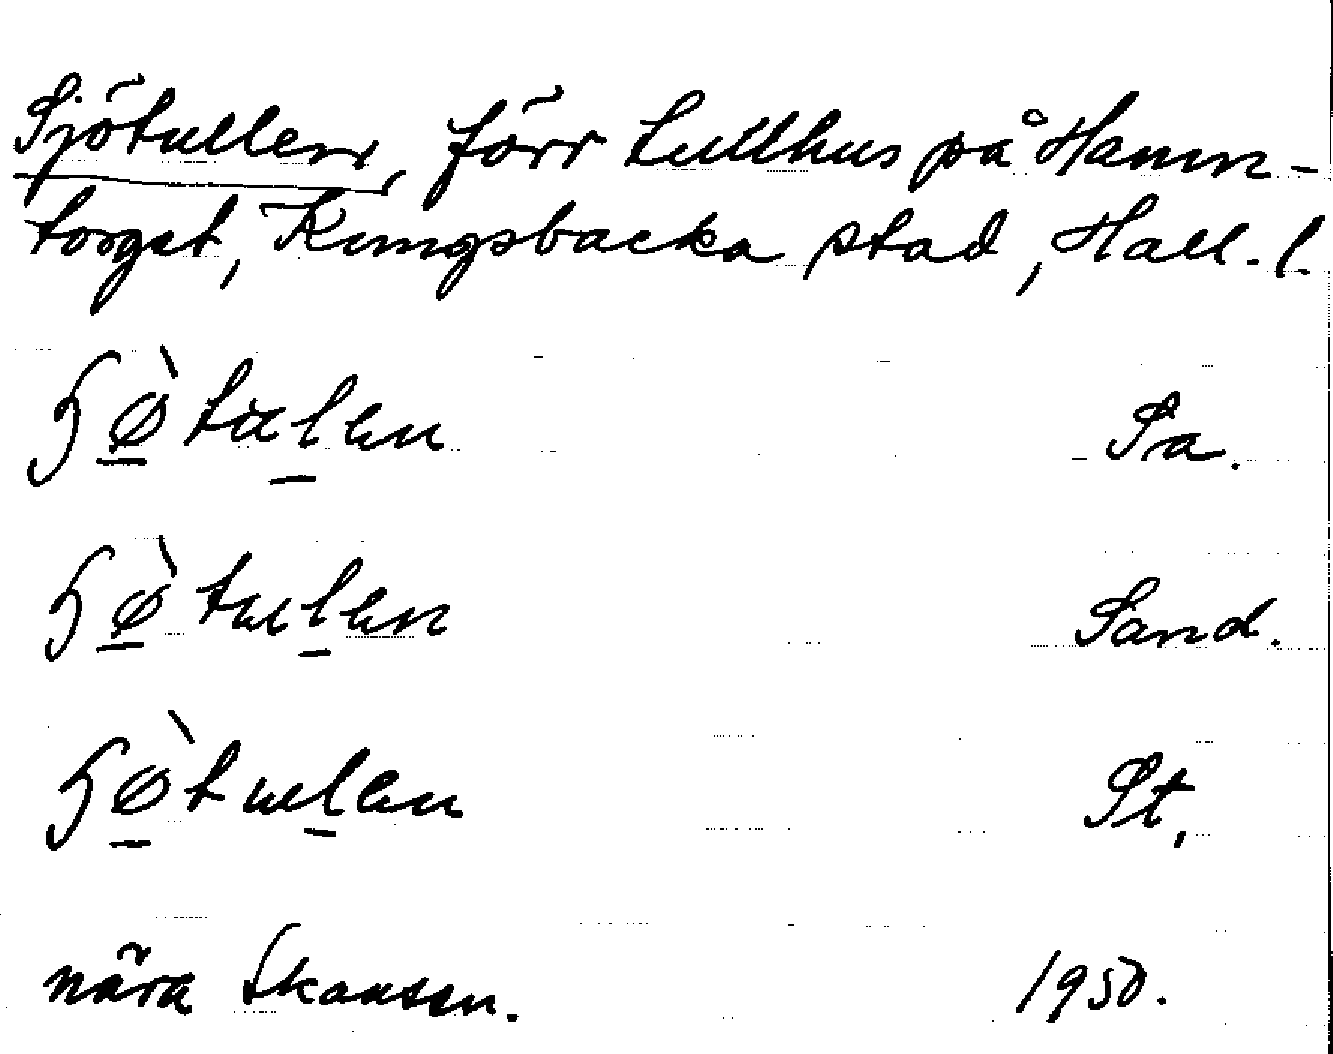 Sjötullen, förr tullhus på Hamn-
torget, Kungsbacka stad, Hall. l.
ɧø̀tɯlen Sa.
ɧø̀tulen Sand.
ɧø̀tulen St.
nära Skansen. 1950.